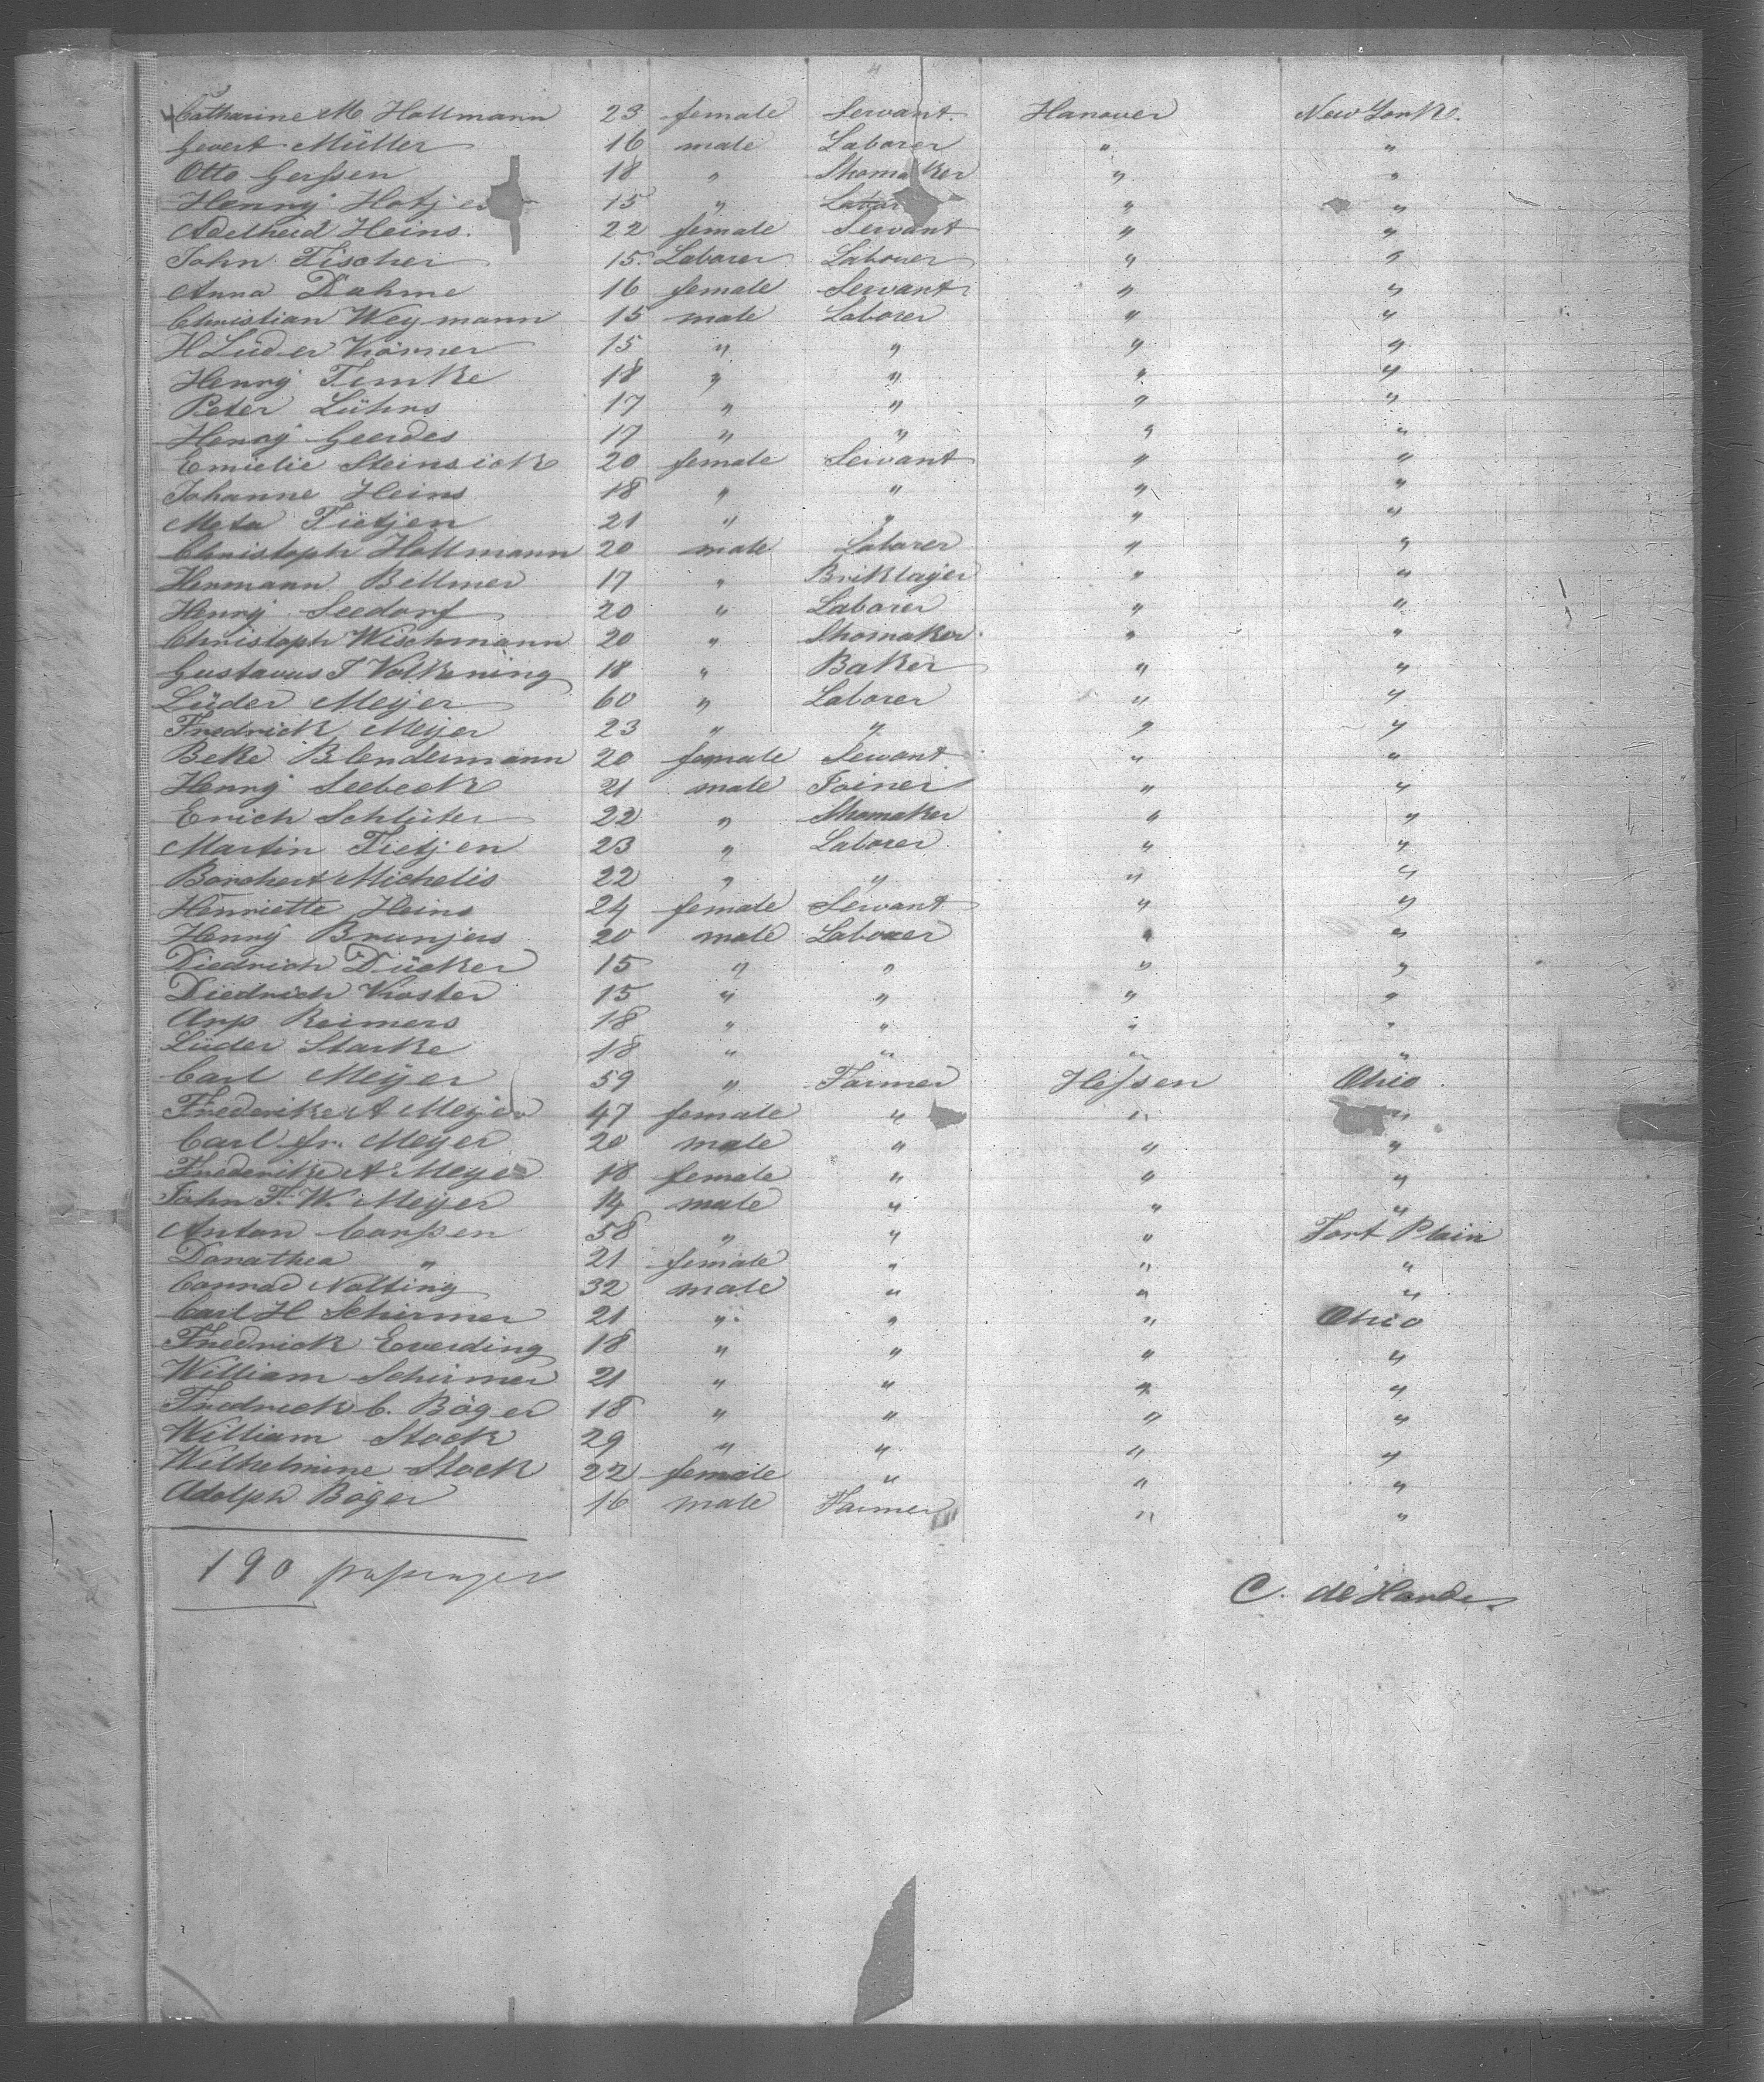 Catharine M Hollmann 23 female Servant Hanover New York.
Gevert Müller 16 male Laborer " "
Otto Gerßen 18 " Shomaker " "
Henry Hotjes 15 " Labor " "
Adelheid Heins. 22 female Servant " "
John Fischer 15. Laborer Laborer " "
Anna Dahme 16 female Servant " "
Christian Weymann 15 male Laborer " "
H Lüder Körner 15 " " " "
Henry Timke 18 " " " "
Peter Lührs 17 " " " "
Henry Geerdes 17 " " " "
Emielie Steinsiek 20 female Servant " "
Johanne Heins 18 " " " "
Meta Tietjen 21 " " " "
Christoph Hollmann 20 male Laborer " "
Hermann Bellmer 17 " Briklayer " "
Henry Seedorf 20 " Laborer " "
Christoph Wischmann 20 " Shomaker " "
Gustavus J Volkening 18 " Baker " "
Lüder Meyer 60 " Laborer " "
Fredrick Meyer 23 " " " "
Beke Blendermann 20 female Servant " "
Henry Seebeck 21 male Joiner " "
Erich Schlüter 22 " Shomaker " "
Martin Tietjen 23 " Laborer " "
Borchert Michelis 22 " " " "
Henriette Heins 24 female Servant " "
Henry Brunjes 20 male Laborer " "
Diedrich Dücker 15 " " " "
Diedrich Koster 15 " " " "
Arp Reimers 18 " " " "
Lüder Starke 18 " " " "
Carl Meyer 59 " Farmer Heßen Ohio
Frederike A Meyer 47 female " " "
Carl jr. Meyer 20 male " " "
Frederike A Meyer 18 female " " "
John F. W. Meyer 14 male " " "
Anton Carßen 58 " " " Fort Plain
Dorathea " 21 female " " "
Conrad Nolting 32 male " " "
Carl H Schirmer 21 " " " Ohio
Fredrick Everding 18 " " " "
William Schirmer 21 " " " "
Fredrick C. Böger 18 " " " "
William Stock 29 " " " "
Wilhelmine Stock 22 female " " "
Adolph Böger 16 male Farmer " "
190 paßengers
C. de Harde